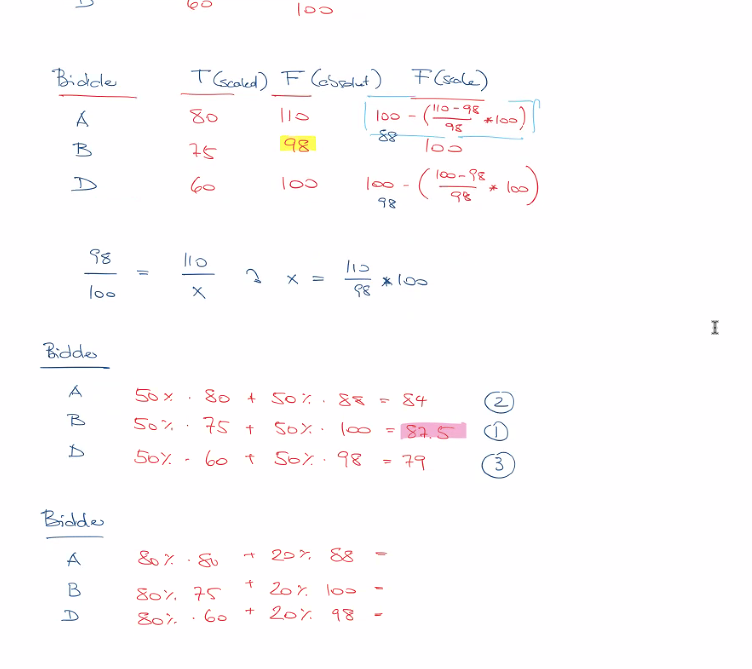 D 60 100
Bidder T (scaled) F (absolut) F (scale)
A 80 110 100 - (110-98/98 * 100)
88
B 75 98 100
D 60 100 100 - (100-98/98 * 100)
98
98/100 = 110/x x = 110/98 * 100
Bidder
A 50% · 80 + 50% · 88 = 84 ②
B 50% · 75 + 50% · 100 = 87.5 ①
D 50% - 60 + 50% · 98 = 79 ③
Bidder
A 80% · 80 + 20% 88 =
B 80% 75 + 20% 100 =
D 80% · 60 + 20% 98 =